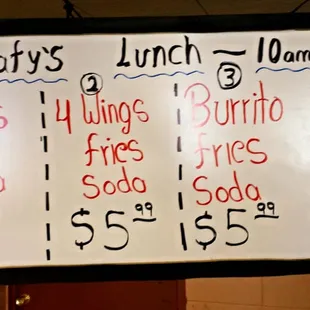 afy's Lunch — 10am
② ③
4 Wings
fries
Soda
$5.99
Burrito
fries
Soda
$5.99